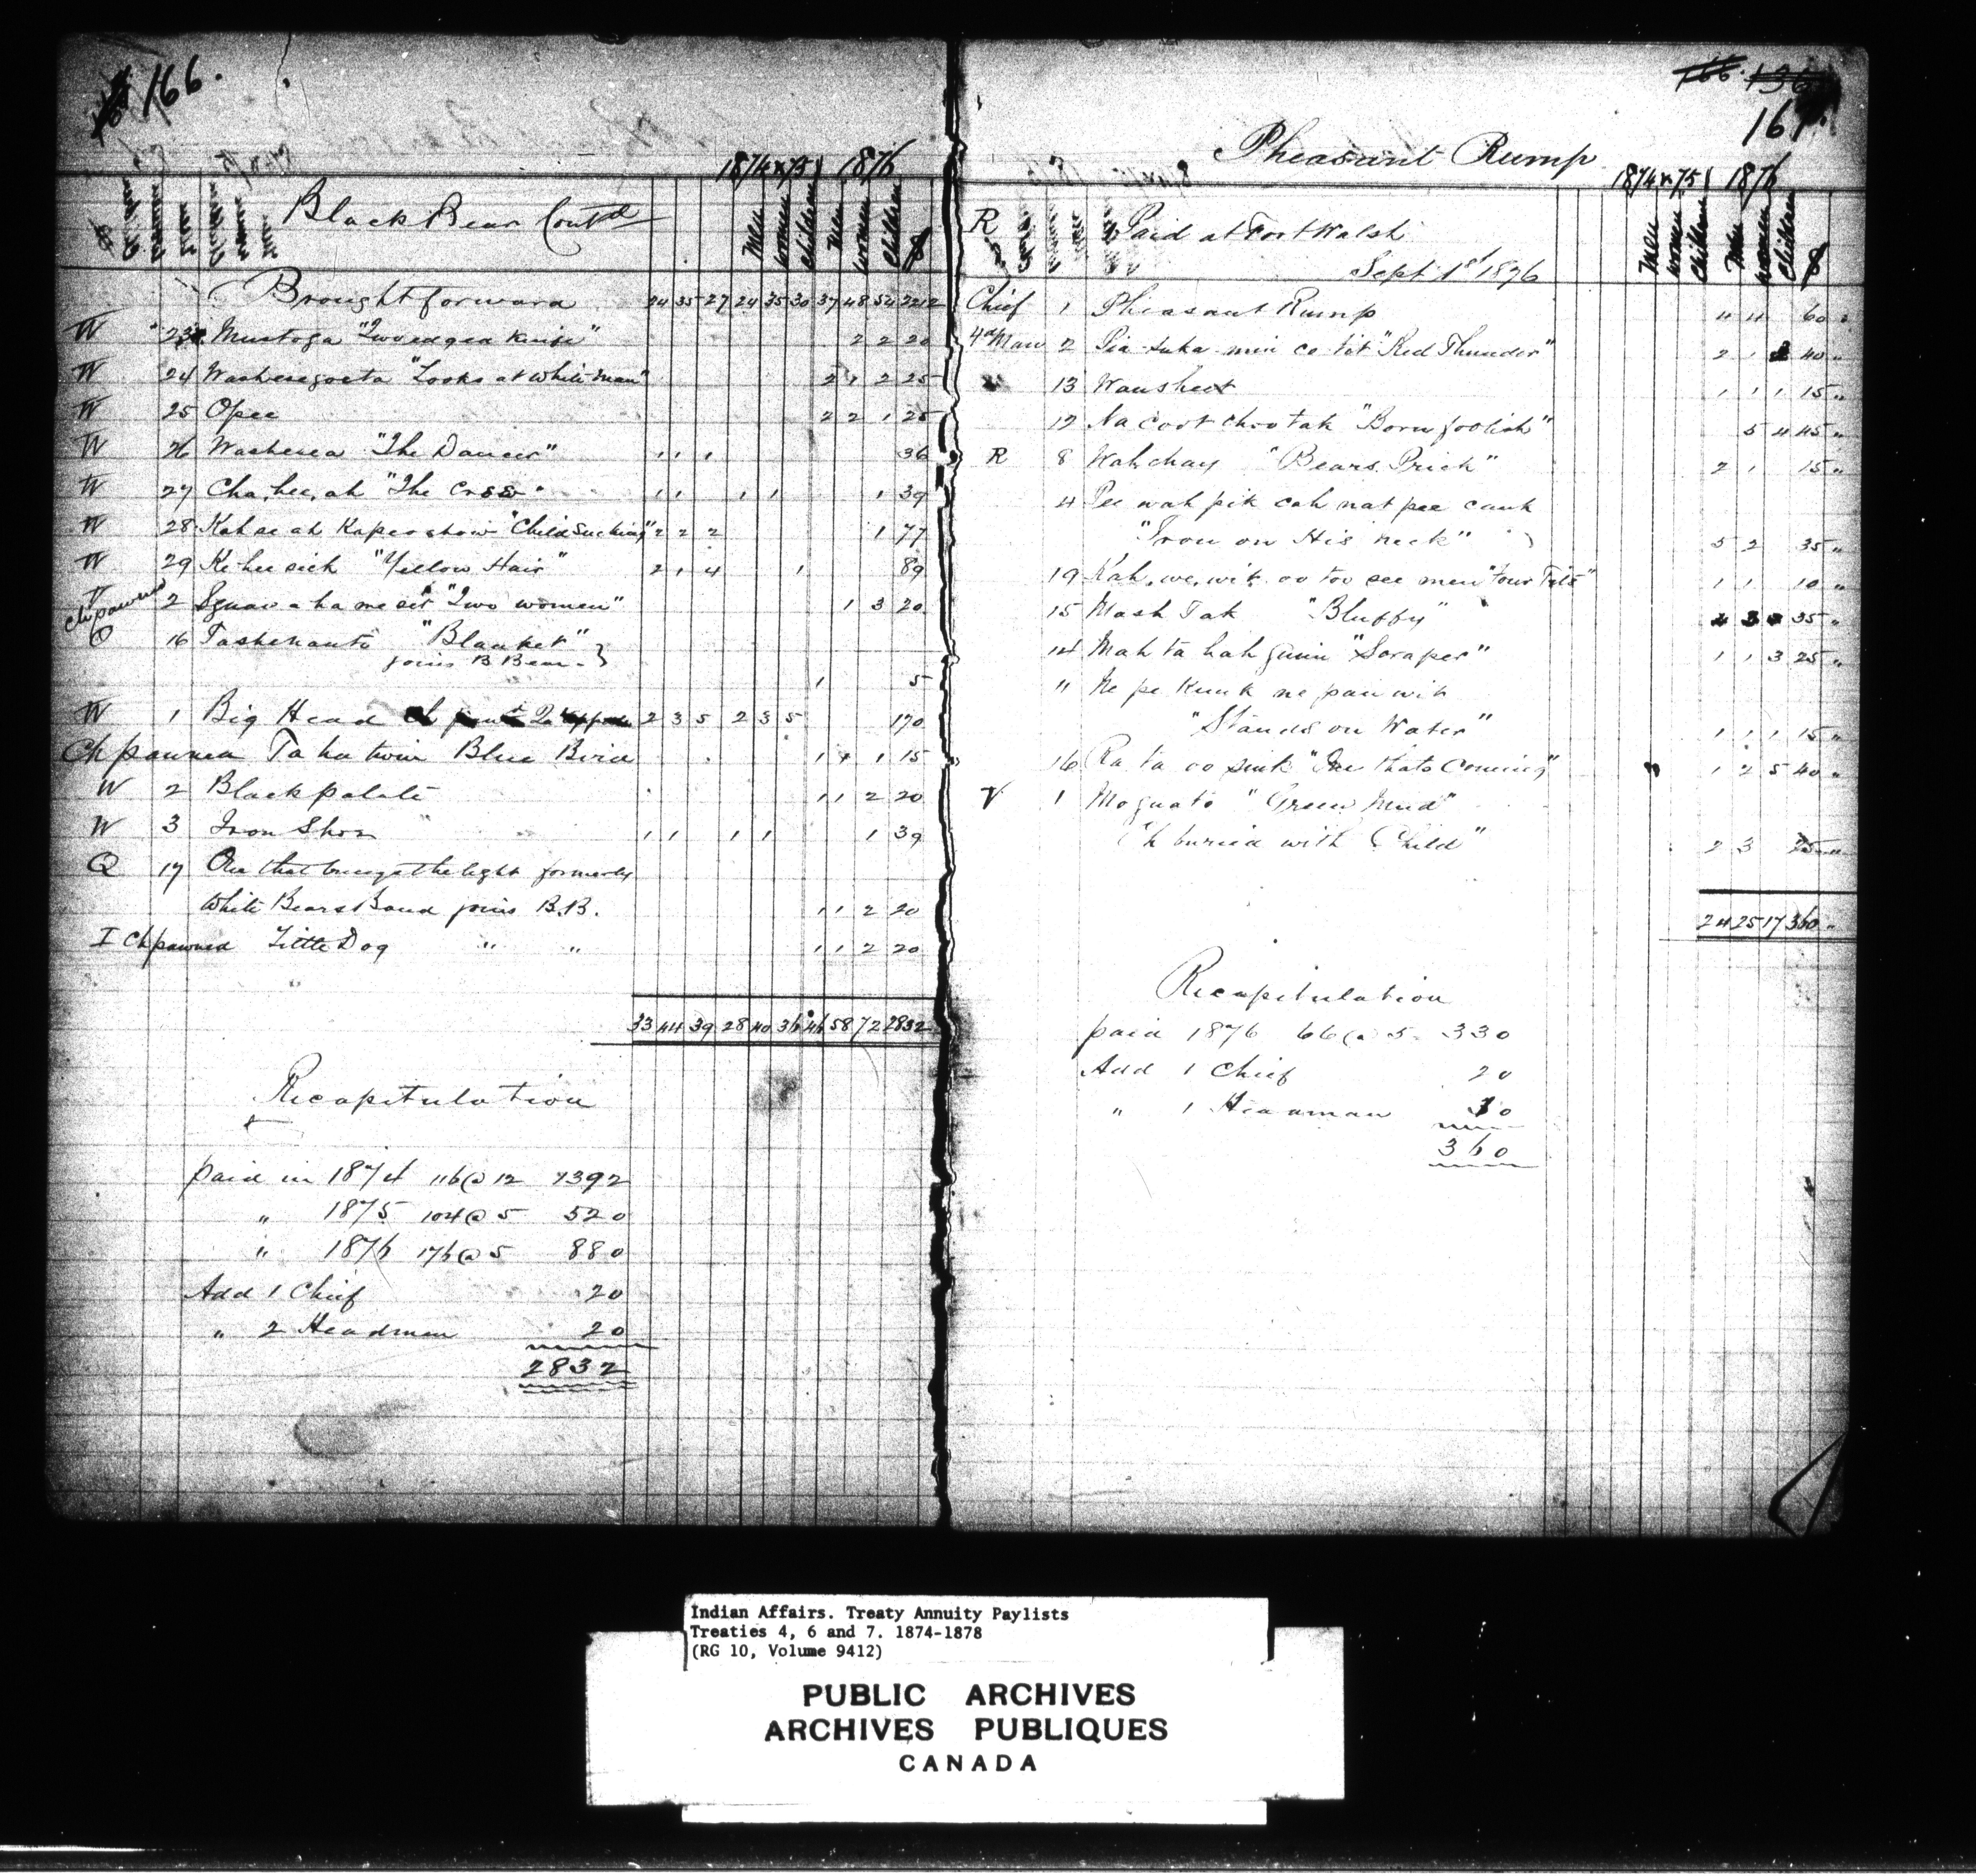 166.
1874 & 75 } 1876
Black Bear Contd
Men Women Children Men Women Children $
Brought forward 24 35 27 24 35 30 37 48 54 2212
W 23 Mustoga "Two edged Knife" 2 2 20
W 24 Washesegoeta "Looks at White Man" 2 1 2 25
W 25 Opee 2 2 1 25
W 26 Washesea "The Dancer" 1 1 1 36
W 27 Cha, hee, ah "The Cross" 1 1 1 1 1 39
W 28 "Child Sucking" 2 2 2 1 77
W 29 Ke hee sick "Yellow Hair" 2 1 4 1 89
2 "Two women" 1 3 20
Chpawned
O 16 Tashenauto "Blanket" }
joins B Bear
1 5
W 1 Big Head 2 3 5 2 3 5 170
Chpawned Ta ha twin Blue Bird 1 1 1 15
W 2 Black palate 1 1 2 20
W 3 Iron Shoe 1 1 1 1 1 39
Q 17 One that brings the light formerly
White Bears Band joins B.B. 1 1 2 20
I Chpawned Little Dog " " 1 1 2 20
33 44 39 28 40 36 46 58 72 2832
Recapitulation
paid in 1874 116 @ 12 1392
" 1875 104 @ 5 520
" 1876 176 @ 5 880
Add 1 Chief 20
" 2 Headmen 20
2832
166. 136
167.
Pheasant Rump
1874 & 75 } 1876
R Paid at Fort Walsh
Men Women Children Men Women Children $
Sept 1st 1876
Chief 1 Pheasant Rump 4 4 60 "
Hd Man 2 "Red Thunder" 2 1 40 "
13 Wausheet 1 1 1 15 "
12 Na coot choo tah "Born foolish" 5 4 45 "
R 8 Wah chay "Bears Prick" 2 1 15 "
4 Pee wah pik cah nat pee cauk
"Iron on His neck" 5 2 35 "
19 Kah, we, wit oo too see men "Four Tits" 1 1 10 "
15 Mash Tak "Bluffy" 35 "
14 Mah ta hah guin "Scraper" 1 1 3 25 "
11 Ne pe Kuuk ne pau wit
"Stands on Water" 1 1 1 15 "
16 Ka ta oo sink "One thats Coming" 1 2 5 40 "
V 1 Moguato "Green Mud"
Ch buried with Child" 2 3 25 "
24 25 17 360 "
Recapitulation
paid 1876 66 @ 5 330
Add 1 Chief 20
" 1 Headman 10
360
Indian Affairs. Treaty Annuity Paylists
Treaties 4, 6 and 7. 1874-1878
(RG 10, Volume 9412)
PUBLIC ARCHIVES
ARCHIVES PUBLIQUES
CANADA